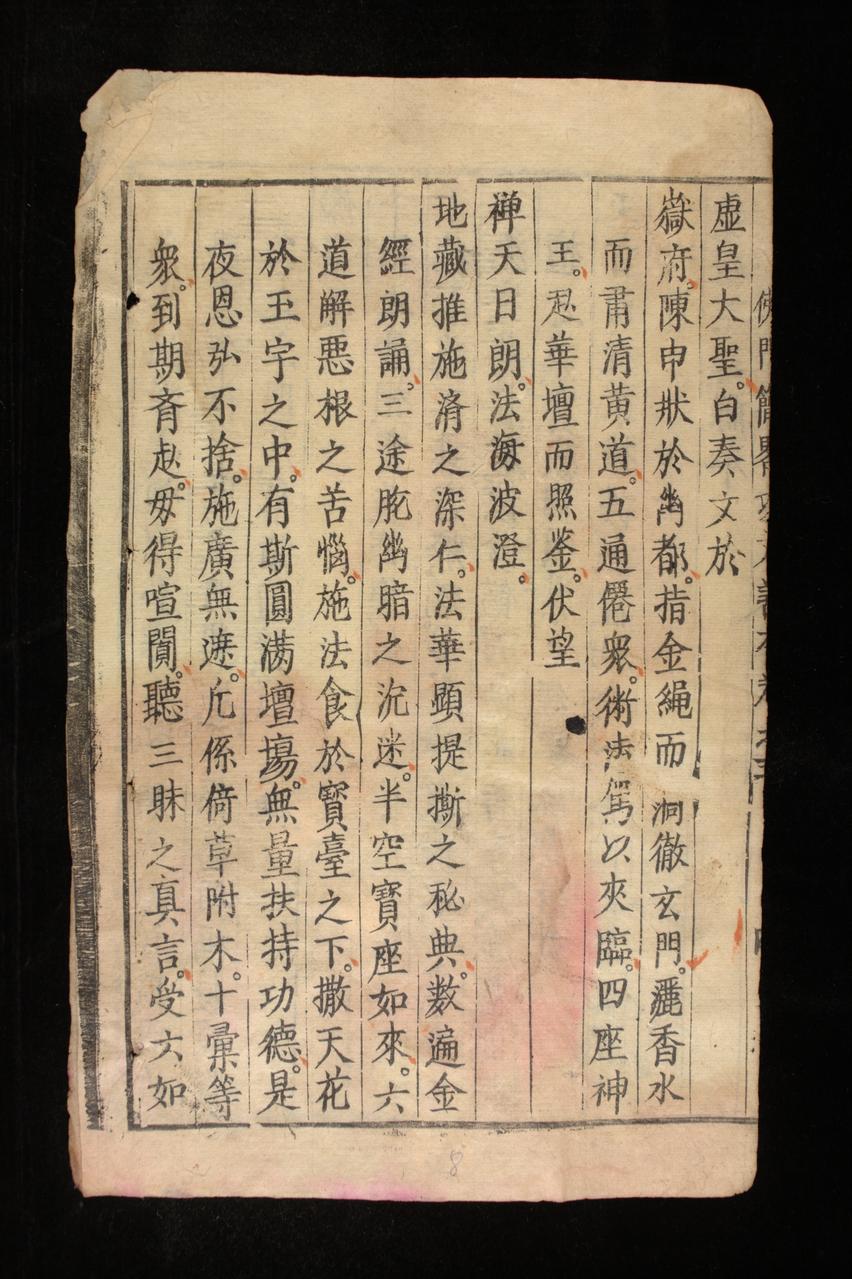 佛門簡畧功文
虛皇大聖。白奏文於
嶽府。陳申狀於幽都。指金繩而洞徹玄門。灑香水
而肅清黄道。五通僊衆。術法駕以夾臨。四座神
王。赴華壇而照鉴。伏望
禅天日朗。法海波澄。
地藏推施濟之深仁。法華顕提撕之秘典。数遍金
經朗誦。三途脫幽暗之沉迷。半空寶座如來。六
道解悪根之苦惱。施法食於寶臺之下。撒天花
於玉宇之中。有斯圓满壇場。無量扶持功德。是
夜恩弘不捨。施廣無遮。凢係倚草附木。十彙等
衆。到期斉赴。毋得喧閴。聽三昧之真言。受六如